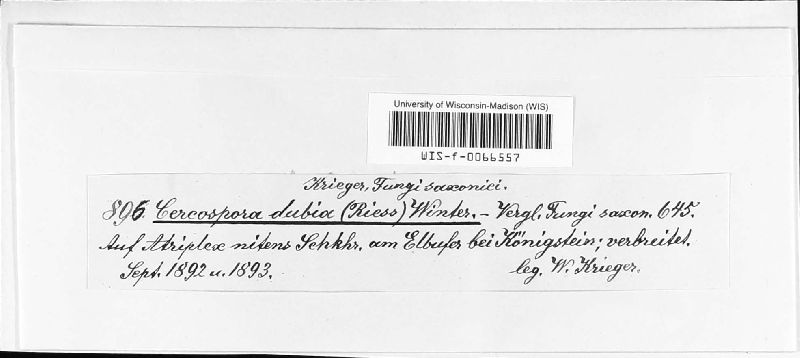 University of Wisconsin-Madison (WIS)
WIS-f-0066557
Krieger, Fungi saxonici.
896. Cercospora dubia (Riess) Winter. – Vergl. Fungi saxon. 645.
Auf Atriplex nitens Schkhr. am Elbufer bei Königstein; verbreitet.
Sept. 1892 u. 1893. leg. W. Krieger.